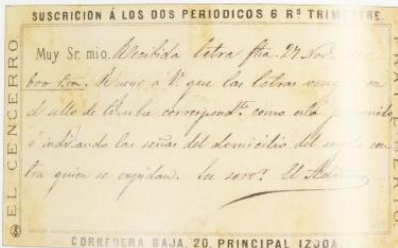 SUSCRICION Á LOS DOS PERIODICOS 6 Rˢ TRIMESTRE.
EL CENCERRO
Muy Sr. mio. Recibida letra fha. 27 Nov.
600 Ruego a V. que las letras en
el sello de timbre correspondᵗᵉ como está
é indicando las señas del domicilio del con
tra quien se expidan. Su servᵒʳ El
CORREDERA BAJA, 20, PRINCIPAL IZQDA